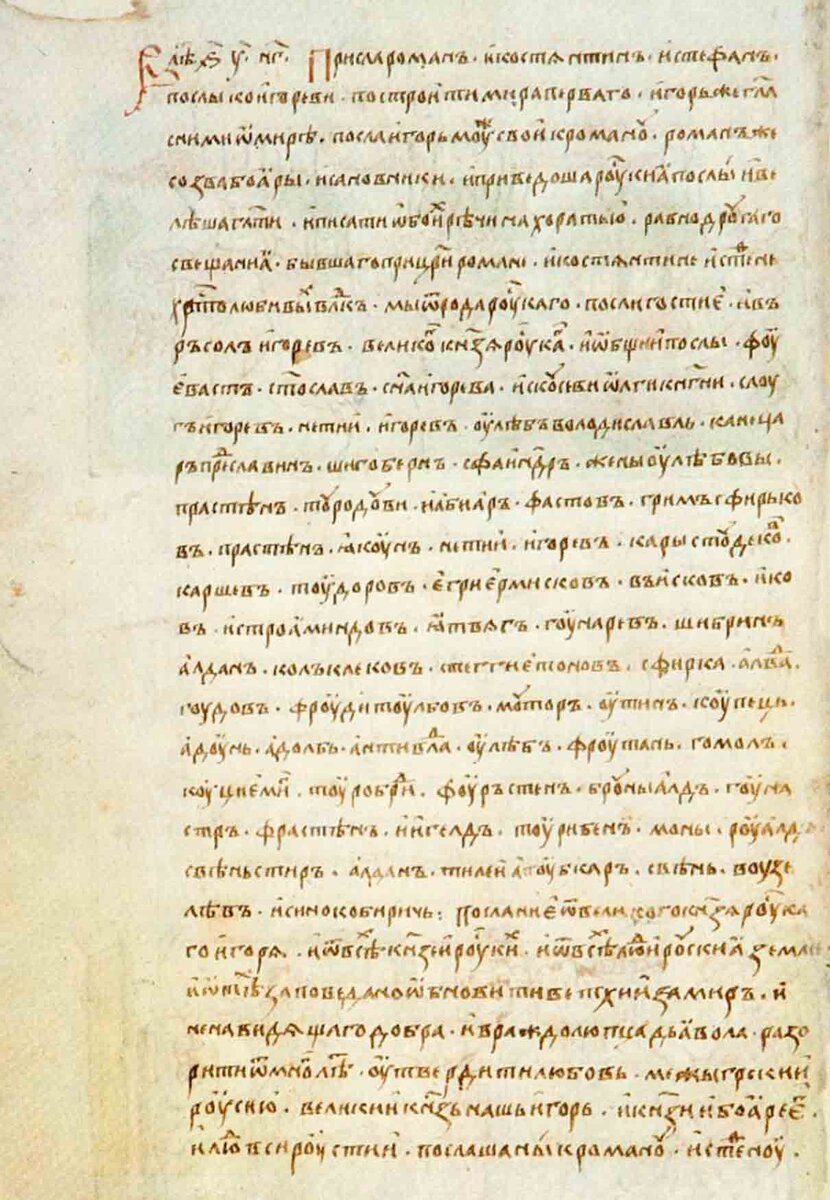 В лѣⷮ ҂ѕ҃ у҃ н҃г Присла романъ · и костѧнтинъ · и стефанъ ·
послы ко игореви · построити мира перваго · игорь же гл҃а
с ними ѡ мирѣ · посла игорь моуⷤ свои к романоу · романъ же
созва боꙗры · и сановники · и приведоша роуⷭкиꙗ послы и ве
лѣша гл҃ати · и писати ѡбоиⷯ рѣчи на хоратью · равно дроугаго
свещаниꙗ · бывшаго при цр҃и романе · и костѧнтине и стеⷴне
хрⷭтолюбивыⷯ влⷣкъ · мы ѿ рода роуⷭкаго · посли и гостие · ивъ
ръ солъ игоревъ · великоⷢ кнѧзѧ роуⷭкаⷢ · и ѡбщии послы · фоу
евастъ · ст҃ославъ · сн҃а игорева · искоусеви ѡлги кнѧгни · слоу
гъ игоревъ · нетии · игоревъ · оулѣбъ володиславль · каница
ръ преⷣславинъ · шигобернъ · сфаинⷣдръ · жены оулѣбовы ·
прастѣнъ · тоуродоуви · либиаръ · фастовъ · гримъ сфирько
въ · прастѣнъ · ꙗкоунъ · нетии · игоревъ · кары стоудекоⷡ ·
каршевъ · тоудоровъ · егри ермисковъ · въисковъ · ико
въ · истроаминдовъ · ꙗтвѧгъ · гоунаревъ · шибринъ
алданъ · колъклековъ · стегги етоновъ · сфирка · алваⷣ
гоудовъ · фроуди тоульбовъ · моуторъ · оутинъ · коупець ·
адоунь · адолбъ · антивлаⷣ · оулѣбъ · фроутань · гомолъ ·
коуци емиⷢ · тоуробриⷣ · фоуръстенъ · броуны алдъ · гоуна
стръ · фрастѣнъ · инgелдъ · тоурибенъ · моны · роуалдъ
свѣньстиръ · алданъ · тилеи апоубкаръ · свѣнь · воузе
лѣвъ · и синокобиричь : Послание ѿ великого кнѧзѧ роуⷭка
го игорѧ · и ѿ всеѣ кнѧжеи роуⷭкиⷯ · и ѿ всѣⷯ людии роускиꙗ земли
и ѿ тѣⷯ заповедано ѡбновити ветхии замиръ · и
ненавидѧщаго добра · и враждолюбца дьꙗвола · разо
рити ѿ мноⷢ лѣⷮ · оутвердити любовь · межы греки и
роусию · великии кнѧзь нашь игорь · и кнѧзи и боꙗре еⷢ ·
и люⷣе вси роустии · послаша ны к романоу · и стеⷴноу ·